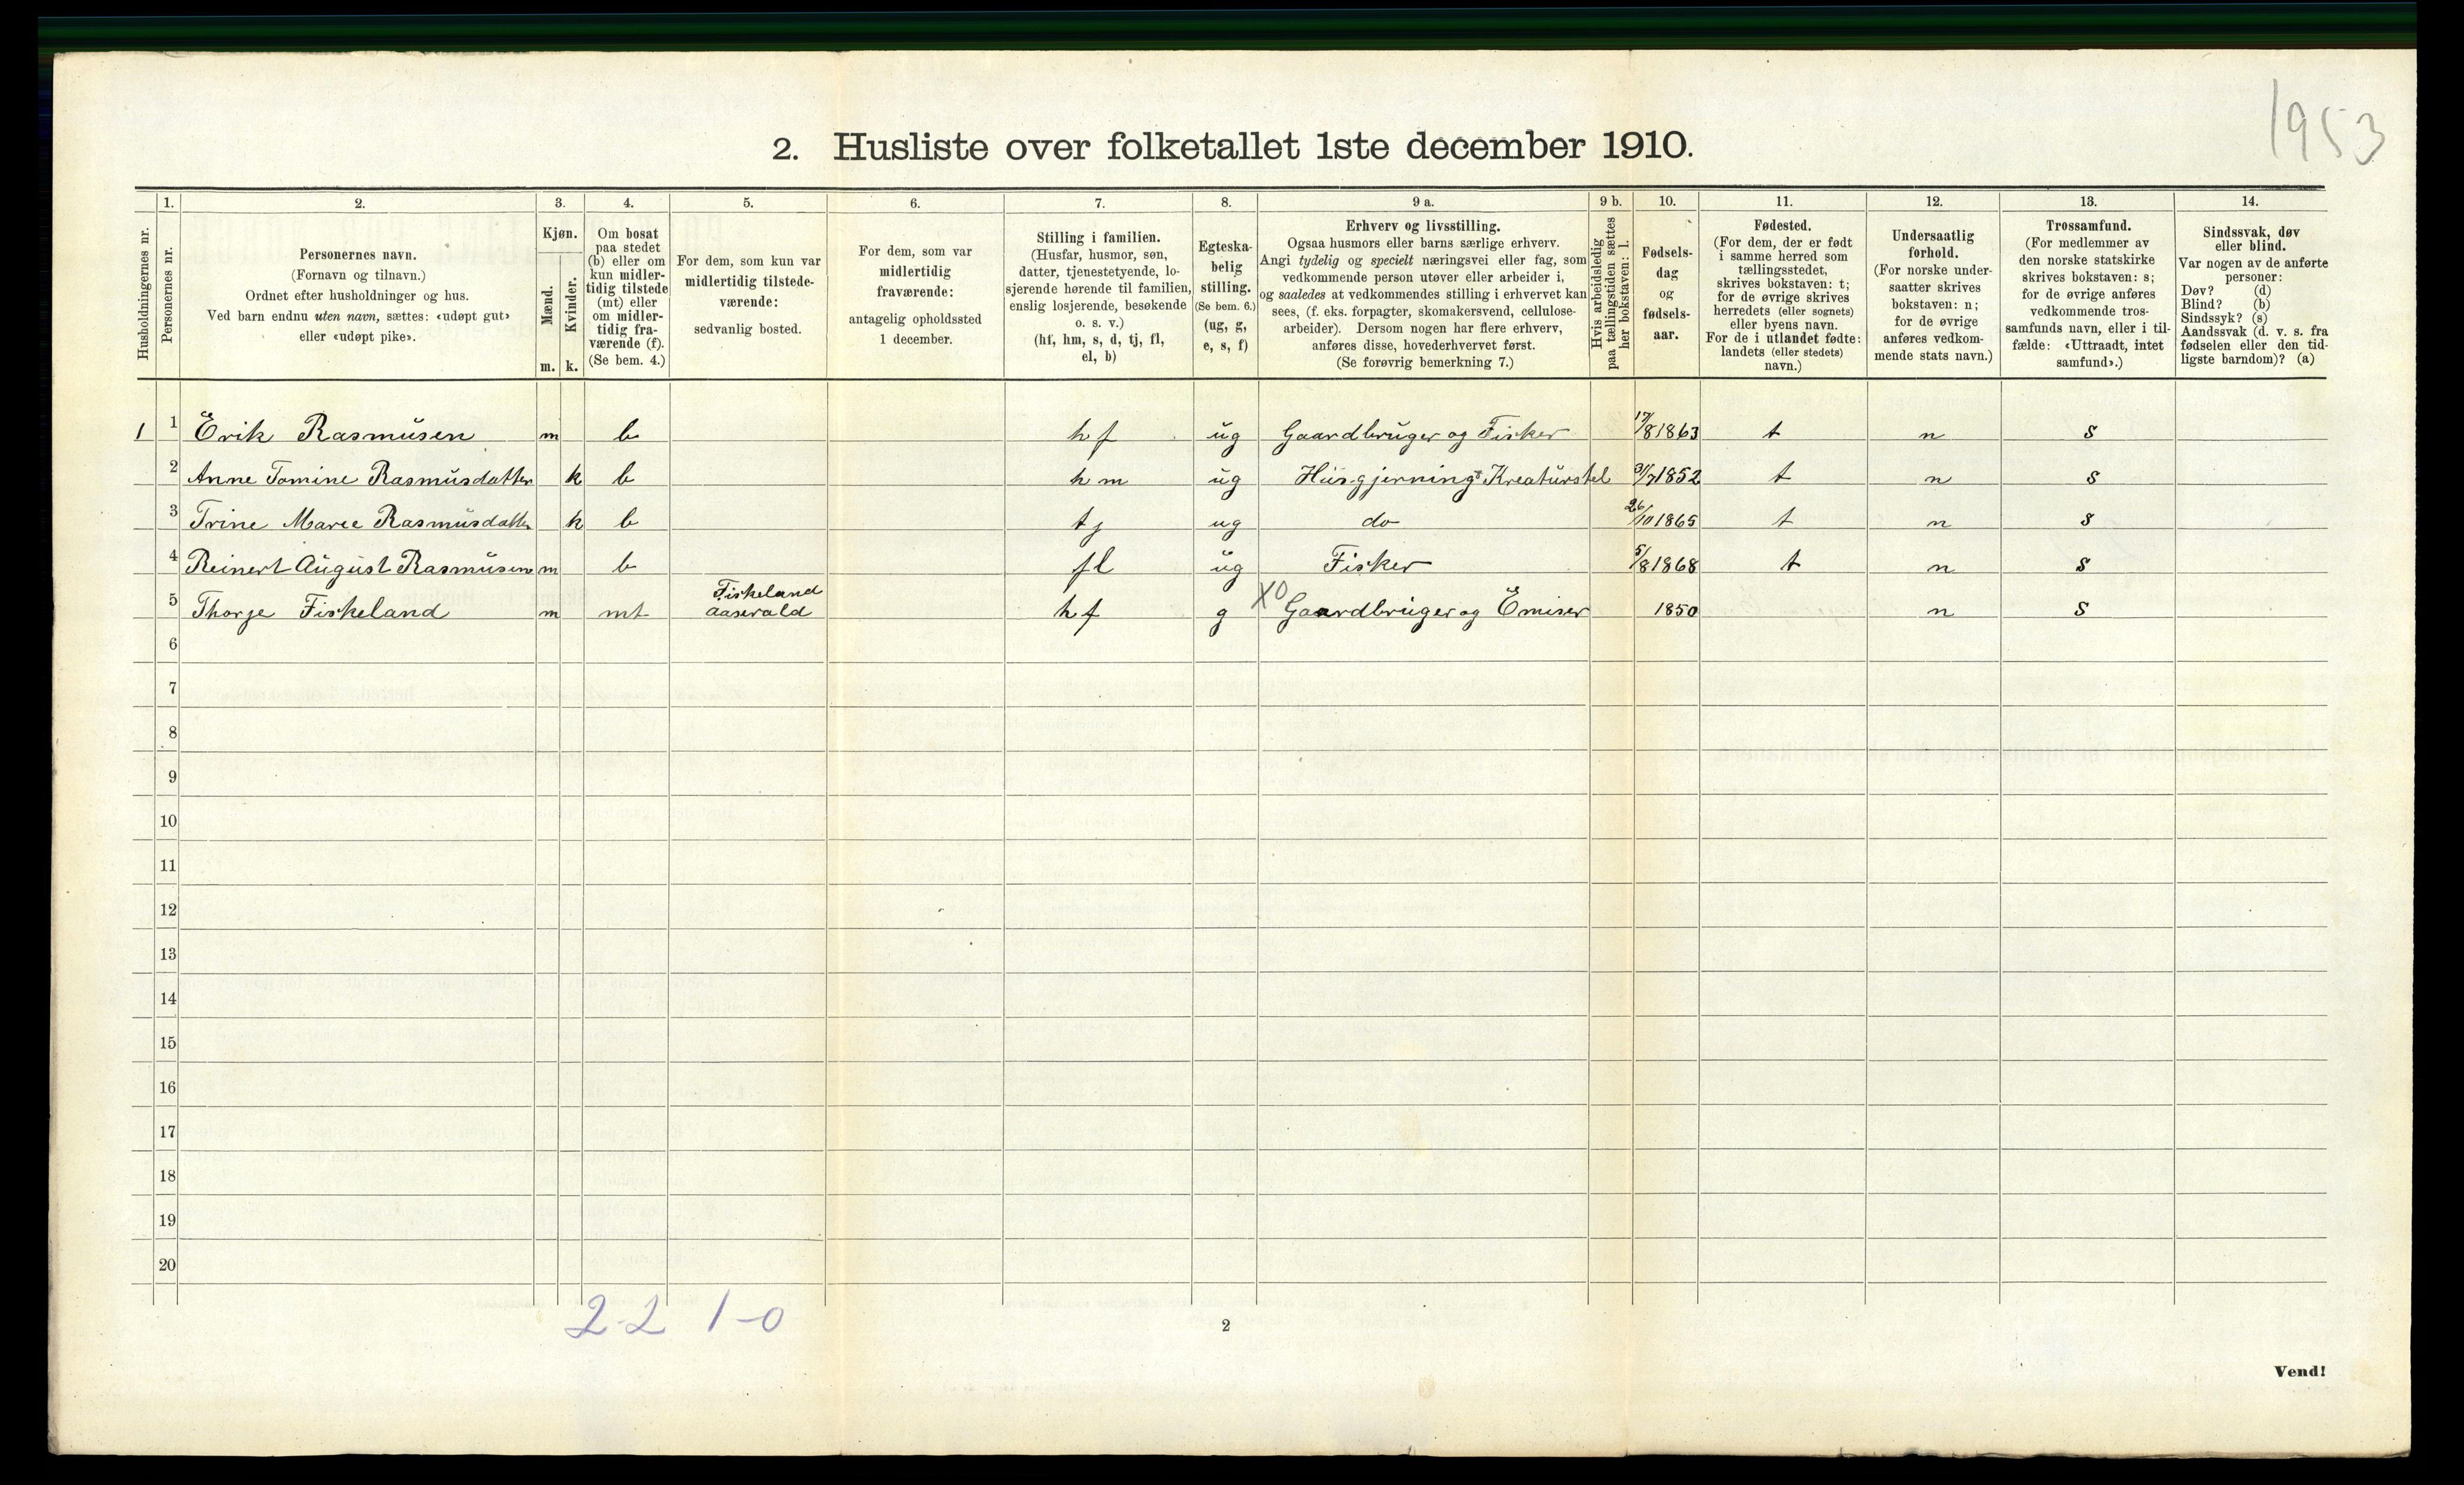 1953
2. Husliste over folketallet 1ste december 1910.
1. 2. 3. 4. 5. 6. 7. 8. 9 a. 9 b. 10. 11. 12. 13. 14.
Husholdningernes nr.
Personernes nr.
Personernes navn.
(Fornavn og tilnavn.)
Ordnet efter husholdninger og hus.
Ved barn endnu uten navn, sættes: «udøpt gut»
eller «udøpt pike».
Kjøn.
Mænd.
Kvinder.
m. k.
Om bosat
paa stedet
(b) eller om
kun midler-
tidig tilstede
(mt) eller
om midler-
tidig fra-
værende (f).
(Se bem. 4.)
For dem, som kun var
midlertidig tilstede-
værende:
sedvanlig bosted.
For dem, som var
midlertidig
fraværende:
antagelig opholdssted
1 december.
Stilling i familien.
(Husfar, husmor, søn,
datter, tjenestetyende, lo-
sjerende hørende til familien,
enslig losjerende, besøkende
o. s. v.)
(hf, hm, s, d, tj, fl,
el, b)
Egteska-
belig
stilling.
(Se bem. 6.)
(ug, g,
e, s, f)
Erhverv og livsstilling.
Ogsaa husmors eller barns særlige erhverv.
Angi tydelig og specielt næringsvei eller fag, som
vedkommende person utøver eller arbeider i,
og saaledes at vedkommendes stilling i erhvervet kan
sees, (f. eks. forpagter, skomakersvend, cellulose-
arbeider). Dersom nogen har flere erhverv,
anføres disse, hovederhvervet først.
(Se forøvrig bemerkning 7.)
Hvis arbeidsledig
paa tællingstiden sættes
her bokstaven: l.
Fødsels-
dag
og
fødsels-
aar.
Fødested.
(For dem, der er født
i samme herred som
tællingsstedet,
skrives bokstaven: t;
for de øvrige skrives
herredets (eller sognets)
eller byens navn.
For de i utlandet fødte:
landets (eller stedets)
navn.)
Undersaatlig
forhold.
(For norske under-
saatter skrives
bokstaven: n;
for de øvrige
anføres vedkom-
mende stats navn.)
Trossamfund.
(For medlemmer av
den norske statskirke
skrives bokstaven: s;
for de øvrige anføres
vedkommende tros-
samfunds navn, eller i til-
fælde: «Uttraadt, intet
samfund».)
Sindssvak, døv
eller blind.
Var nogen av de anførte
personer:
Døv? (d)
Blind? (b)
Sindssyk? (s)
Aandssvak (d. v. s. fra
fødselen eller den tid-
ligste barndom)? (a)
1 1 Erik Rasmusen m b hf ug Gaardbruger og Fisker 17/8 1863 t n s
2 Anne Tomine Rasmusdatter k b hm ug Husgjerning Kreaturstel 31/7 1852 t n s
3 Trine Marie Rasmusdatter k b tj ug do 26/10 1865 t n s
4 Reinert August Rasmusen m b fl ug Fisker 5/8 1868 t n s
5 Thorje Fiskeland m mt Fiskeland
Aaserald hf g X0 Gaardbruger og Emiser 1850 n s
6
7
8
9
10
11
12
13
14
15
16
17
18
19
20
2-2 1-0
2
Vend!